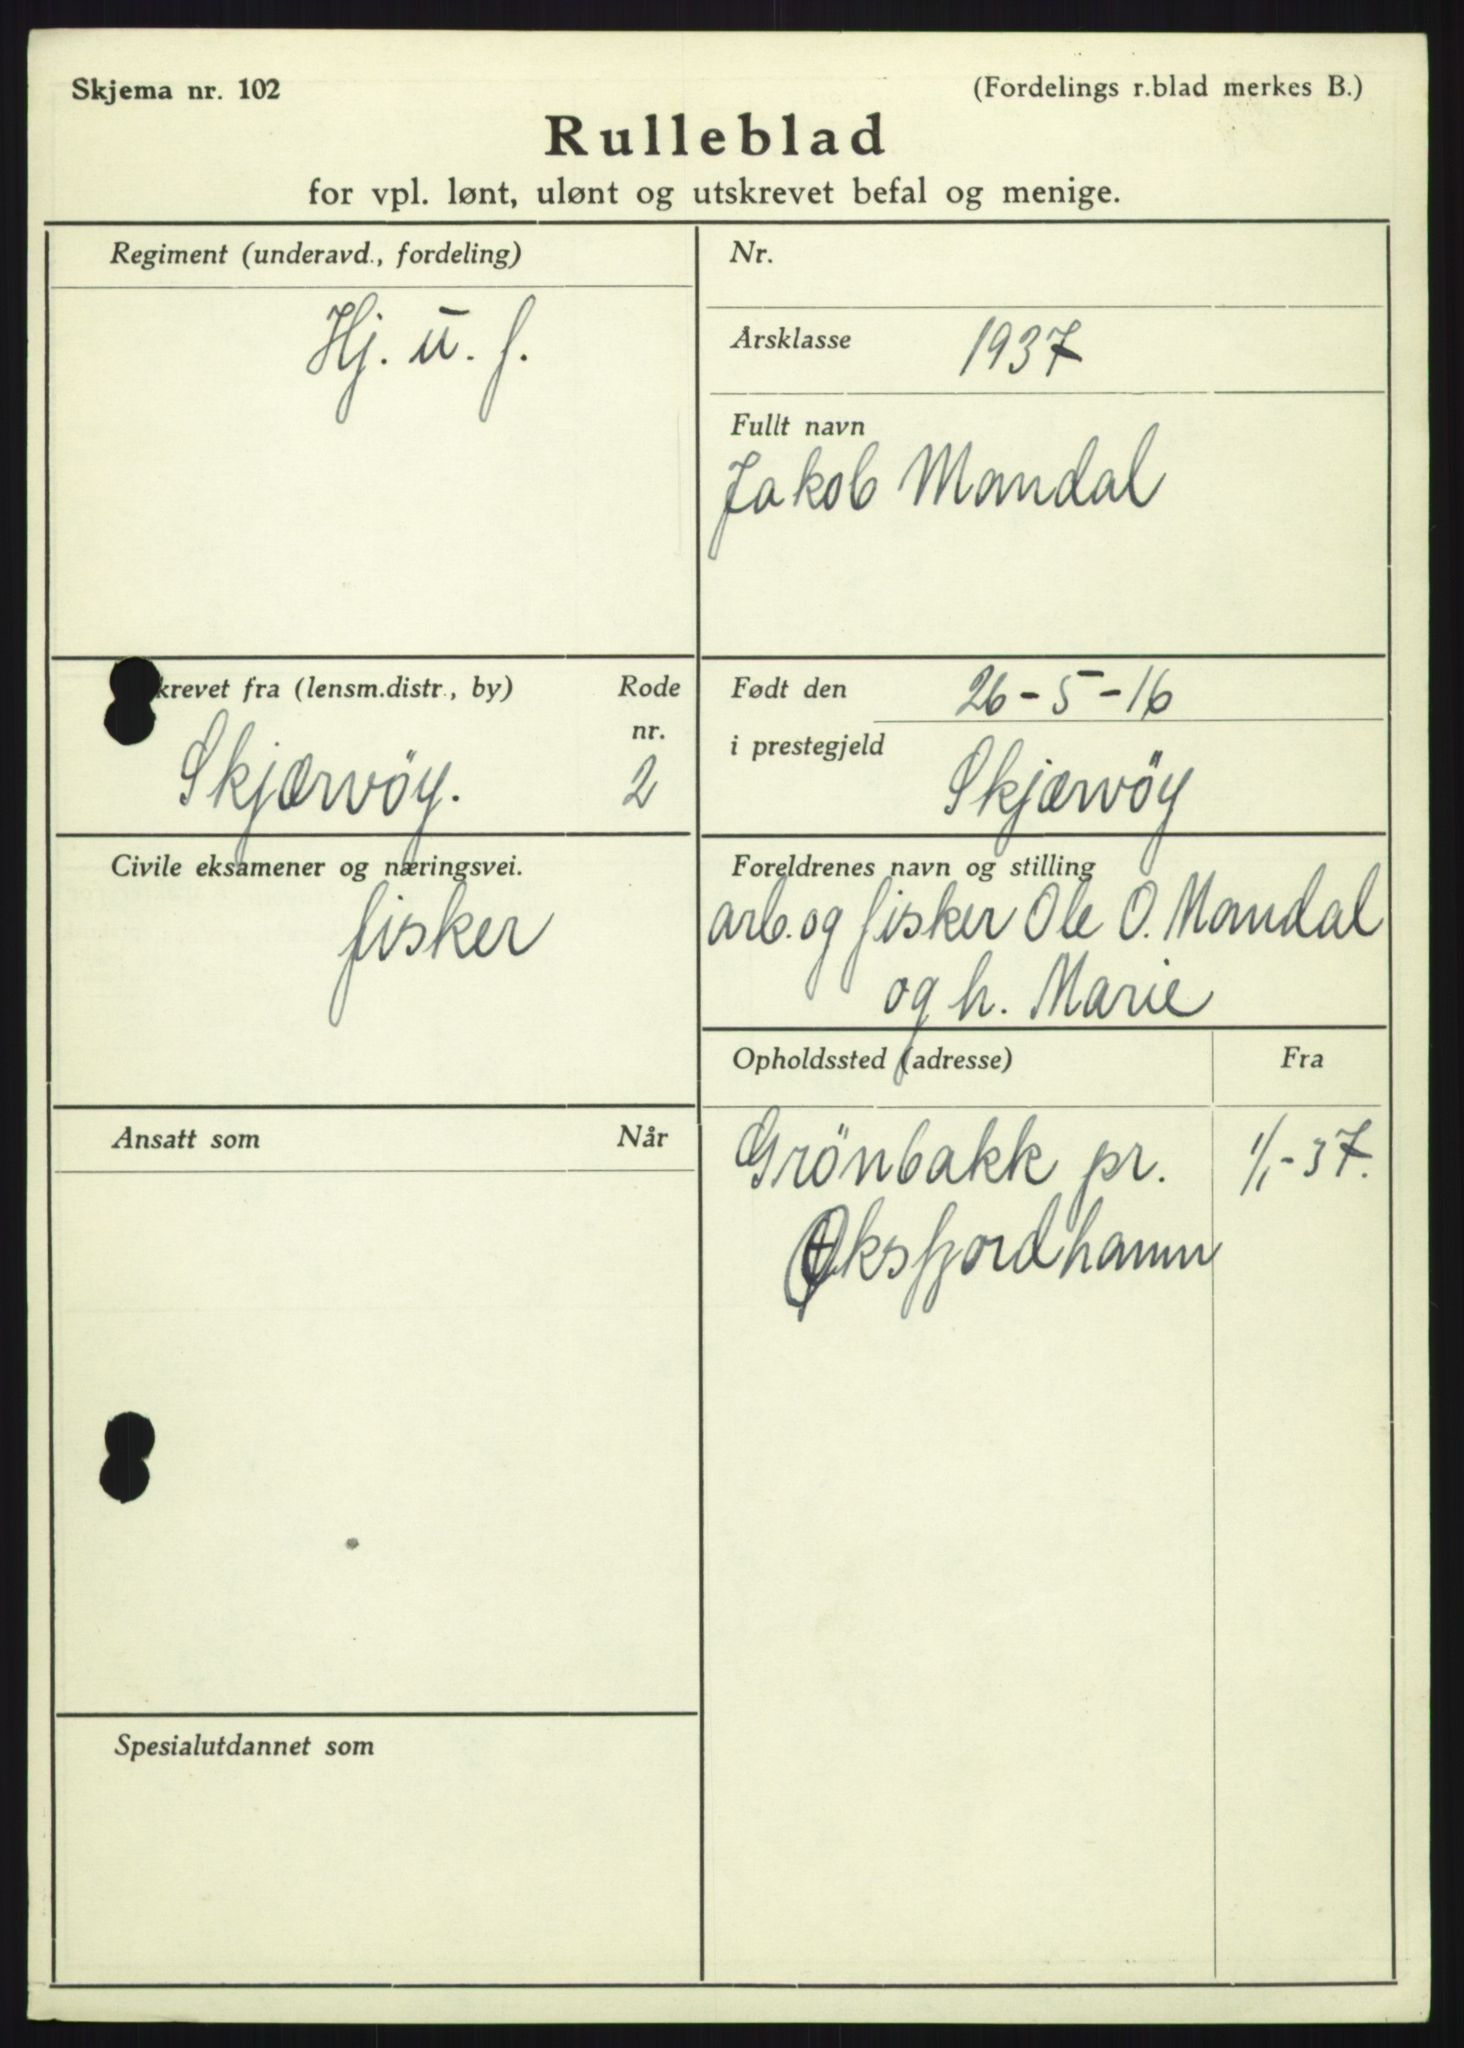 Skjema nr. 102
(Fordelings r.blad merkes B.)
Rulleblad
for vpl. lønt, ulønt og utskrevet befal og menige.
Regiment (underavd., fordeling)
Hj. u. f.
Nr.
Årsklasse 1937
Fullt navn
Jakob Mandal
krevet fra (lensm.distr., by)
Rode
nr.
Skjærvöy. 2
Født den 26-5-16
i prestegjeld
Skjærvöy
Civile eksamener og næringsvei.
fisker
Foreldrenes navn og stilling
arb. og fisker Ole O. Mandal
og h. Marie
Opholdssted (adresse) Fra
Grönbakk pr. 1/1-37.
Øksfjordhamn
Ansatt som Når
Spesialutdannet som